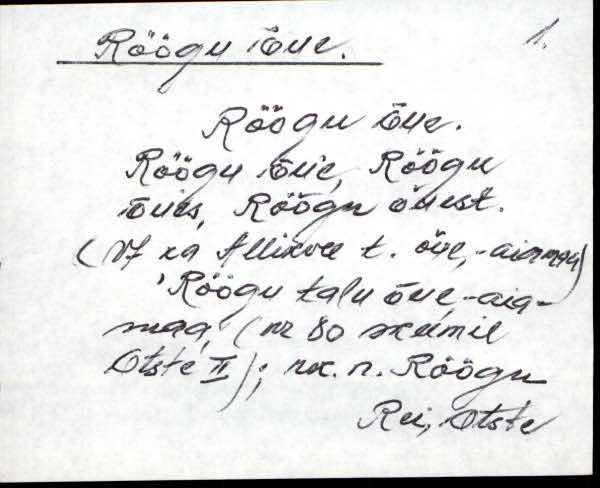 Röögu õue.
1.
Röögu õue.
Röögu õue, Röögu
õues, Röögu õuest.
(vt ka Allikvee t. õue, -aiamaa)
'Röögu talu õue, -aia-
maa, (nr 80 skeemil
Otste II); rk. n. Röögu
Rei, Otste